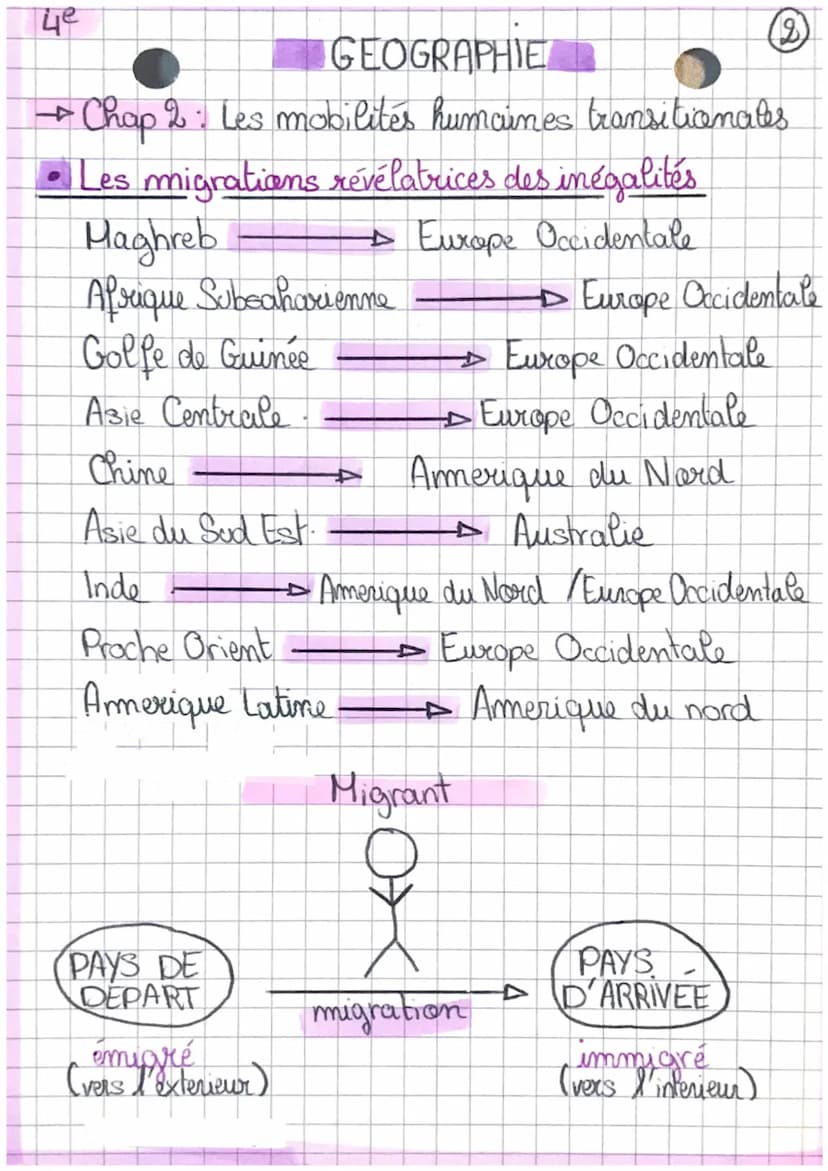 4e
2
GEOGRAPHIE
→ Chap 2 : Les mobilités humaines transitionales
• Les migrations révélatrices des inégalités
Maghreb → Europe Occidentale
Afrique Subsaharienne → Europe Occidentale
Golfe de Guinée → Europe Occidentale
Asie Centrale → Europe Occidentale
Chine → Amerique du Nord
Asie du Sud Est. → Australie
Inde → Amerique du Nord / Europe Occidentale
Proche Orient → Europe Occidentale
Amerique Latine → Amerique du nord
Migrant
PAYS DE PAYS
DEPART D'ARRIVÉE
migration
émigré immigré
(vers l'exterieur) (vers l'interieur)